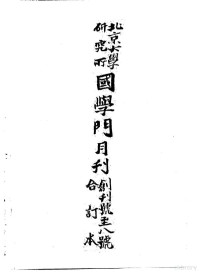 北京大學
研究所
國學門月刊
創刊號至八號
合訂本